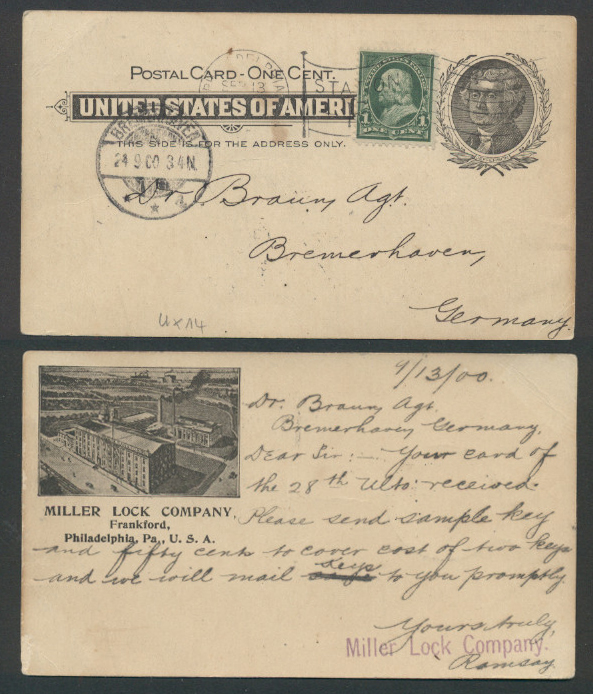 POSTAL CARD - ONE CENT.
UNITED STATES OF AMERI
THIS SIDE IS FOR THE ADDRESS ONLY.
SEP 13
STA
1 1
ONE CENT
BREMERHAVEN
24 9 00 3-4N.
Dr. Braun, Agt.
Bremerhaven,
Germany.
UX14
9/13/00.
Dr. Braun, Agt.
Bremerhaven, Germany.
Dear Sir:— Your card of
the 28th Ulto. received.
Please send sample key
and fifty cents to cover cost of two keys
and we will mail keys to you promptly.
Yours truly,
Miller Lock Company.
Ramsay
MILLER LOCK COMPANY,
Frankford,
Philadelphia, Pa., U. S. A.